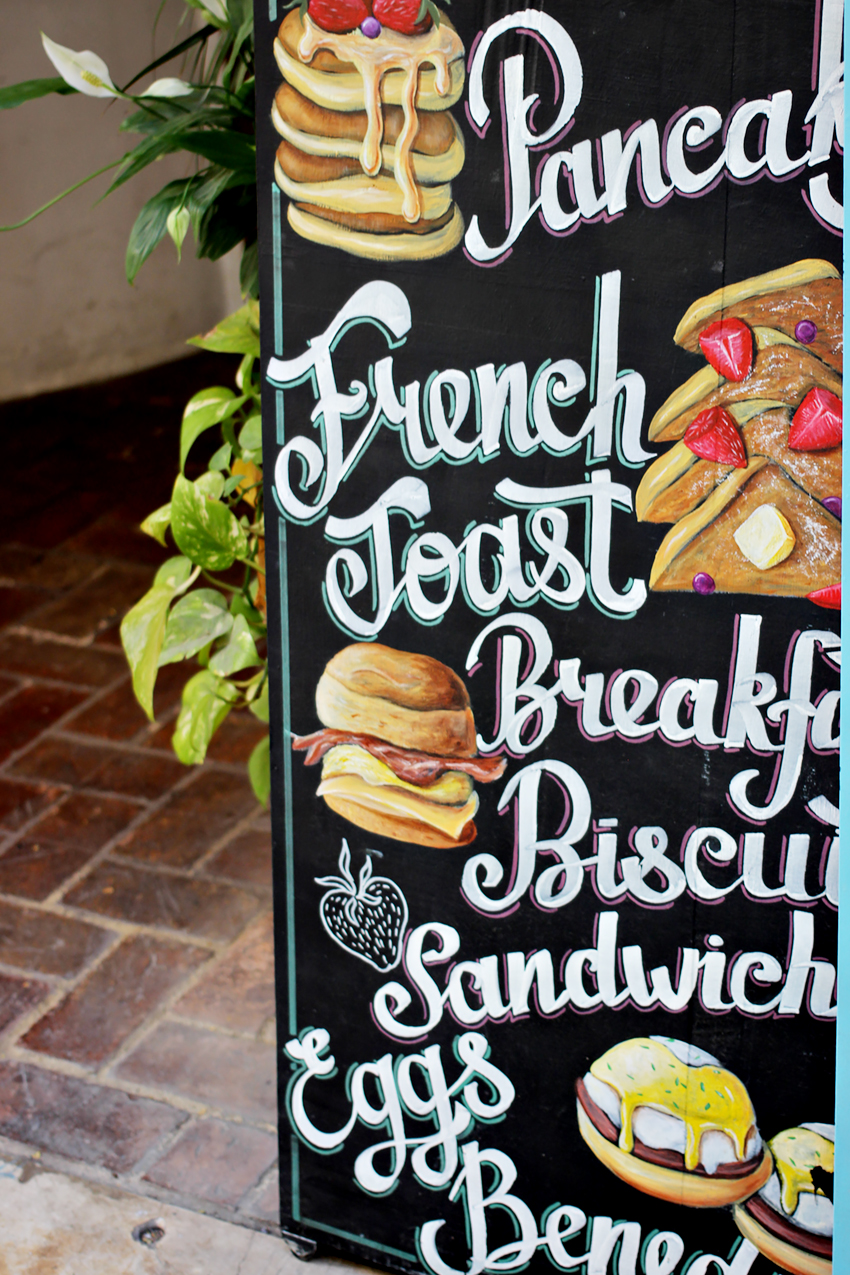 Pancak
French
Toast
Breakfa
Biscui
Sandwich
Eggs
Bened